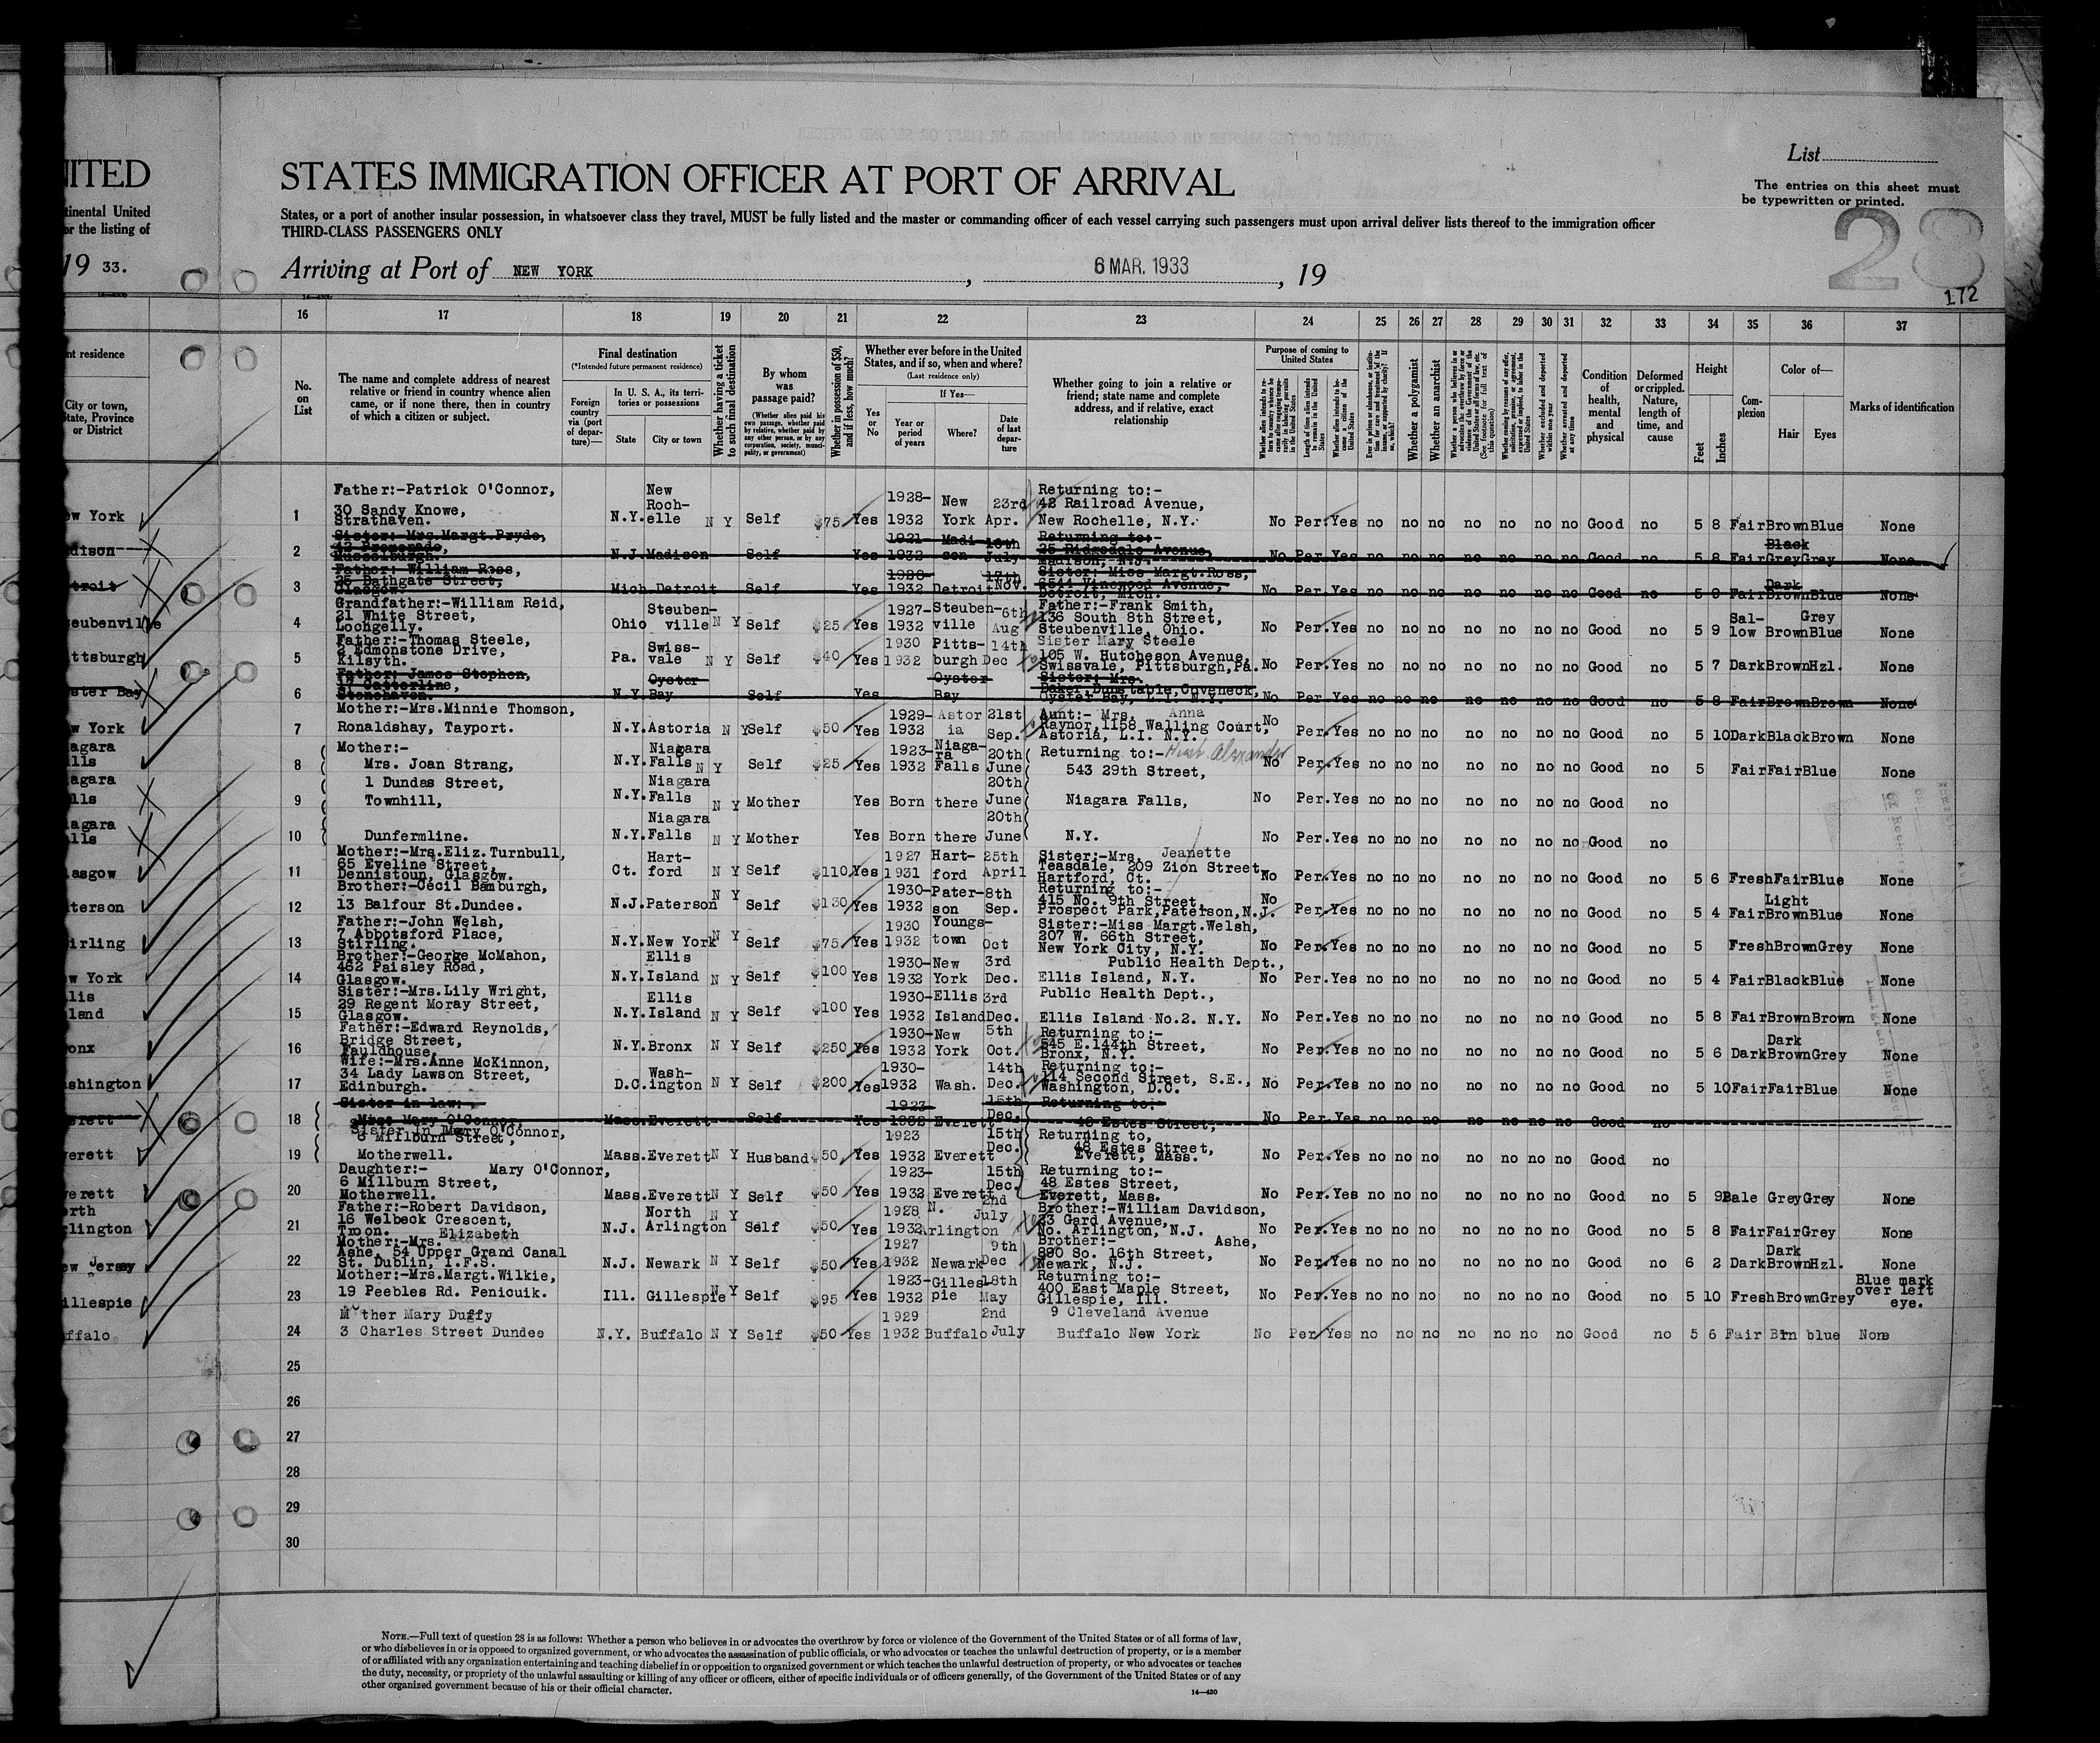 NITED
STATES IMMIGRATION OFFICER AT PORT OF ARRIVAL
List
The entries on this sheet must
be typewritten or printed.
tinental United
or the listing of
States, or a port of another insular possession, in whatsoever class they travel, MUST be fully listed and the master or commanding officer of each vessel carrying such passengers must upon arrival deliver lists thereof to the immigration officer
THIRD-CLASS PASSENGERS ONLY
28
172
19 33.
Arriving at Port of NEW YORK, 6 MAR. 1933, 19
16 17 18 19 20 21 22 23 24 25 26 27 28 29 30 31 32 33 34 35 36 37
nt residence
City or town,
State, Province
or District
No. on List
The name and complete address of nearest
relative or friend in country whence alien
came, or if none there, then in country
of which a citizen or subject.
Final destination
(*Intended future permanent residence)
Foreign country via (port of departure)—
In U. S. A., its territories or possessions
State City or town
Whether having a ticket to such final destination
By whom was passage paid?
(Whether alien paid his own passage, whether paid by relative, whether paid by any other person, or by any corporation, society, municipality, or government)
Whether in possession of $50, and if less, how much?
Whether ever before in the United
States, and if so, when and where?
(Last residence only)
Yes or No
If Yes—
Year or period of years
Where?
Date of last departure
Whether going to join a relative or
friend; state name and complete
address, and if relative, exact
relationship
Purpose of coming to
United States
Length of time alien intends to remain in the United States
Whether alien intends to become a citizen of the United States
Whether a polygamist
Whether an anarchist
Whether excluded and deported within one year
Whether arrested and deported at any time
Condition of health, mental and physical
Deformed or crippled. Nature, length of time, and cause
Height
Feet Inches
Complexion
Color of—
Hair Eyes
Marks of identification
ew York
1 Father:-Patrick O'Connor, 30 Sandy Knowe, Strathaven. N.Y. New Roch-elle N Y Self $75 Yes 1928-1932 New York 23rd Apr. Returning to:- 42 Railroad Avenue, New Rochelle, N.Y. No Per. Yes no no no no no no no Good no 5 8 Fair Brown Blue None
dison
2 Sister: Mrs.Margt.Pryde, N.J. Madison Self Yes 1921-1932 Madi-son July Returning to:- 25 Ridgedale Avenue, Madison, N.J. No Per. Yes no no no no no no no Good no 5 8 Fair Black Grey Grey None
troit
3 Father: William Ross, 25 Bathgate Street, Glasgow. Mich. Detroit Self Yes 1932 Detroit 17th Nov. Sister: Miss Margt.Ross, Vinewood Avenue, Detroit, Mich. No Per. Yes no no no no no no no Good no 5 9 Fair Dark Brown Blue None
teubenville
4 Grandfather:-William Reid, 21 White Street, Lochgelly. Ohio Steuben-ville N Y Self $25 Yes 1927-1932 Steuben-ville 6th Aug Father:-Frank Smith, 136 South 8th Street, Steubenville, Ohio. No Per. Yes no no no no no no no Good no 5 9 Sal-low Brown Grey Blue None
ittsburgh
5 Father:-Thomas Steele, 2 Edmonstone Drive, Kilsyth. Pa. Swiss-vale N Y Self $40 Yes 1930 1932 Pitts-burgh 14th Dec Sister Mary Steele 105 W. Hutcheson Avenue, Swissvale, Pittsburgh,Pa. No Per. Yes no no no no no no no Good no 5 7 Dark Brown Hzl. None
ster Bay
6 Father: James Stephen, 17 Catterline, Stonehaven. N.Y. Oyster Bay Self Yes Oyster Bay Sister: Mrs. Baker, Dunstable, Coveneck, Oyster Bay, L.I. N.Y. No Per. Yes no no no no no no no Good no 5 8 Fair Brown Brown None
w York
7 Mother:-Mrs.Minnie Thomson, Ronaldshay, Tayport. N.Y. Astoria N Y Self $50 Yes 1929-1932 Astor ia 21st Sep. Aunt:- Mrs. Anna Raynor, 1158 Walling Court, Astoria, L.I. N.Y. No Per. Yes no no no no no no no Good no 5 10 Dark Black Brown None
iagara lls
8 Mother:- Mrs. Joan Strang, N.Y. Niagara Falls N Y Self $25 Yes 1923-1932 Niaga-ra Falls 20th June Returning to:- Alexander 543 29th Street, No Per. Yes no no no no no no no Good no 5 Fair Fair Blue None
iagara lls
9 1 Dundas Street, Townhill, N.Y. Niagara Falls N Y Mother Yes Born there 20th June Niagara Falls, No Per. Yes no no no no no no no Good no
iagara lls
10 Dunfermline. N.Y. Niagara Falls N Y Mother Yes Born there 20th June N.Y. No Per. Yes no no no no no no no Good no
lasgow
11 Mother:-Mrs.Eliz.Turnbull, 65 Eveline Street, Dennistoun, Glasgow. Ct. Hart-ford N Y Self $110 Yes 1927 1931 Hart-ford 25th April Sister:-Mrs. Jeanette Teasdale, 209 Zion Street, Hartford, Ct. No Per. Yes no no no no no no no Good no 5 6 Fresh Fair Blue None
terson
12 Brother:-Cecil Bamburgh, 13 Balfour St.Dundee. N.J. Paterson N Y Self $130 Yes 1930-1932 Pater-son 8th Sep. Returning to:- 415 No. 9th Street, Prospect Park,Paterson,N.J. No Per. Yes no no no no no no no Good no 5 4 Fair Light Brown Blue None
tirling
13 Father:-John Welsh, 7 Abbotsford Place, Stirling. N.Y. New York N Y Self $75 Yes 1930 1932 Youngs-town Oct Sister:-Miss Margt.Welsh, 207 W. 66th Street, New York City, N.Y. No Per. Yes no no no no no no no Good no 5 Fresh Brown Grey None
w York
14 Brother:-George McMahon, 462 Paisley Road, Glasgow. N.Y. Ellis Island N Y Self $100 Yes 1930-1932 New York 3rd Dec. Public Health Dept., Ellis Island, N.Y. No Per. Yes no no no no no no no Good no 5 4 Fair Black Blue None
llis land
15 Sister:-Mrs.Lily Wright, 29 Regent Moray Street, Glasgow. N.Y. Ellis Island N Y Self $100 Yes 1930-1932 Ellis Island 3rd Dec. Public Health Dept., Ellis Island No.2. N.Y. No Per. Yes no no no no no no no Good no 5 8 Fair Brown Brown None
onx
16 Father:-Edward Reynolds, Bridge Street, Fauldhouse. N.Y. Bronx N Y Self $250 Yes 1930-1932 New York 5th Oct. Returning to:- 545 E.144th Street, Bronx, N.Y. No Per. Yes no no no no no no no Good no 5 6 Dark Dark Brown Grey None
shington
17 Wife:-Mrs.Anne McKinnon, 34 Lady Lawson Street, Edinburgh. D.C. Wash-ington N Y Self $200 Yes 1930-1932 Wash. 14th Dec. Returning to:- 114 Second Street, S.E., Washington, D.C. No Per. Yes no no no no no no no Good no 5 10 Fair Fair Blue None
erett
18 Sister in law: Mrs. Mary O'Connor, Mass. Everett Self Yes 1923 1932 Everett 15th Dec. Returning to:- 48 Estes Street, No Per. Yes no no no no no no no Good no
verett
19 Sister in Mary O'Connor, 6 Millburn Street, Motherwell. Mass. Everett N Y Husband $50 Yes 1923 1932 Everett 15th Dec. Returning to, 48 Estes Street, Everett, Mass. No Per. Yes no no no no no no no Good no
verett
20 Daughter:- Mary O'Connor, 6 Millburn Street, Motherwell. Mass. Everett N Y Self $50 Yes 1923-1932 Everett 15th Dec. Returning to:- 48 Estes Street, Everett, Mass. No Per. Yes no no no no no no no Good no 5 9 Pale Grey Grey None
orth rlington
21 Father:-Robert Davidson, 16 Welbeck Crescent, Troon. N.J. North Arlington N Y Self $50 Yes 1928 1932 N. Arlington 2nd July Brother:-William Davidson, 23 Gard Avenue, No. Arlington, N.J. No Per. Yes no no no no no no no Good no 5 8 Fair Fair Grey None
ew Jersey
22 Mother:-Mrs. Elizabeth Ashe, 54 Upper Grand Canal St. Dublin, I.F.S. N.J. Newark N Y Self $50 Yes 1927 1932 Newark 9th Dec Brother:- Ashe, 890 So. 16th Street, Newark, N.J. No Per. Yes no no no no no no no Good no 6 2 Dark Dark Brown Hzl. None
illespie
23 Mother:-Mrs.Margt.Wilkie, 19 Peebles Rd. Penicuik. Ill. Gillespie N Y Self $95 Yes 1923-1932 Gilles-pie 18th May Returning to:- 400 East Maple Street, Gillespie, Ill. No Per. Yes no no no no no no no Good no 5 10 Fresh Brown Grey Blue mark over left eye.
uffalo
24 Mother Mary Duffy 3 Charles Street Dundee N.Y. Buffalo N Y Self $50 Yes 1929 1932 Buffalo 2nd July 9 Cleveland Avenue Buffalo New York No Per Yes no no no no no no no Good no 5 6 Fair Brn blue None
25
26
27
28
29
30
NOTE.—Full text of question 28 is as follows: Whether a person who believes in or advocates the overthrow by force or violence of the Government of the United States or of all forms of law,
or who disbelieves in or is opposed to organized government, or who advocates the assassination of public officials, or who advocates or teaches the unlawful destruction of property, or is a member
of or affiliated with any organization entertaining and teaching disbelief in or opposition to organized government or which teaches the unlawful destruction of property, or who advocates or teaches
the duty, necessity, or propriety of the unlawful assaulting or killing of any officer or officers, either of specific individuals or of officers generally, of the Government of the United States or of any
other organized government because of his or their official character.
14—430